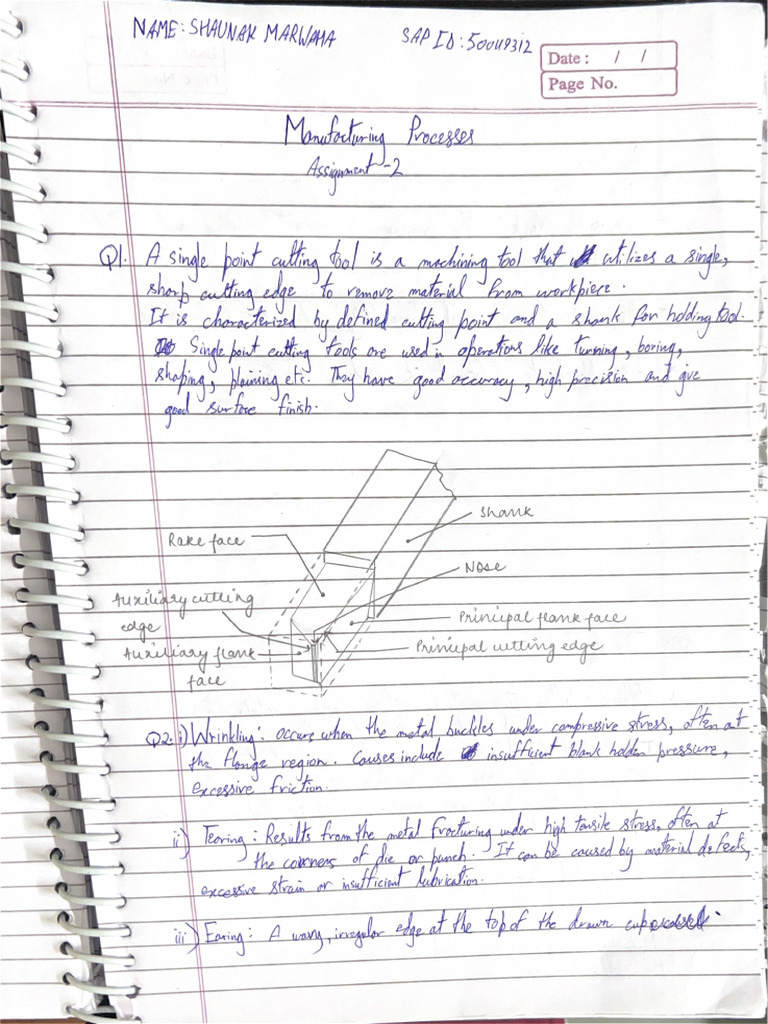 NAME: SHAUNAK MARWAHA SAP ID: 500119312
Date : / /
Page No.
Manufacturing Processes
Assignment -2
Q1. A single point cutting tool is a machining tool that utilizes a single,
sharp cutting edge to remove material from workpiece.
It is characterized by defined cutting point and a shank for holding tool.
Single point cutting tools are used in operations like turning, boring,
shaping, plaining etc. They have good accuracy, high precision and give
good surface finish.
Shank
Rake face
Nose
Auxiliary cutting
edge
Principal flank face
Auxiliary flank
face
Principal cutting edge
Q2. i) Wrinkling: occurs when the metal buckles under compressive stress, often at
the flange region. Causes include insufficient blank holder pressure,
excessive friction.
ii) Tearing: Results from the metal fracturing under high tensile stress, often at
the corners of die or punch. It can be caused by material defects,
excessive strain or insufficient lubrication.
iii) Earing: A wavy, irregular edge at the top of the drawn cup